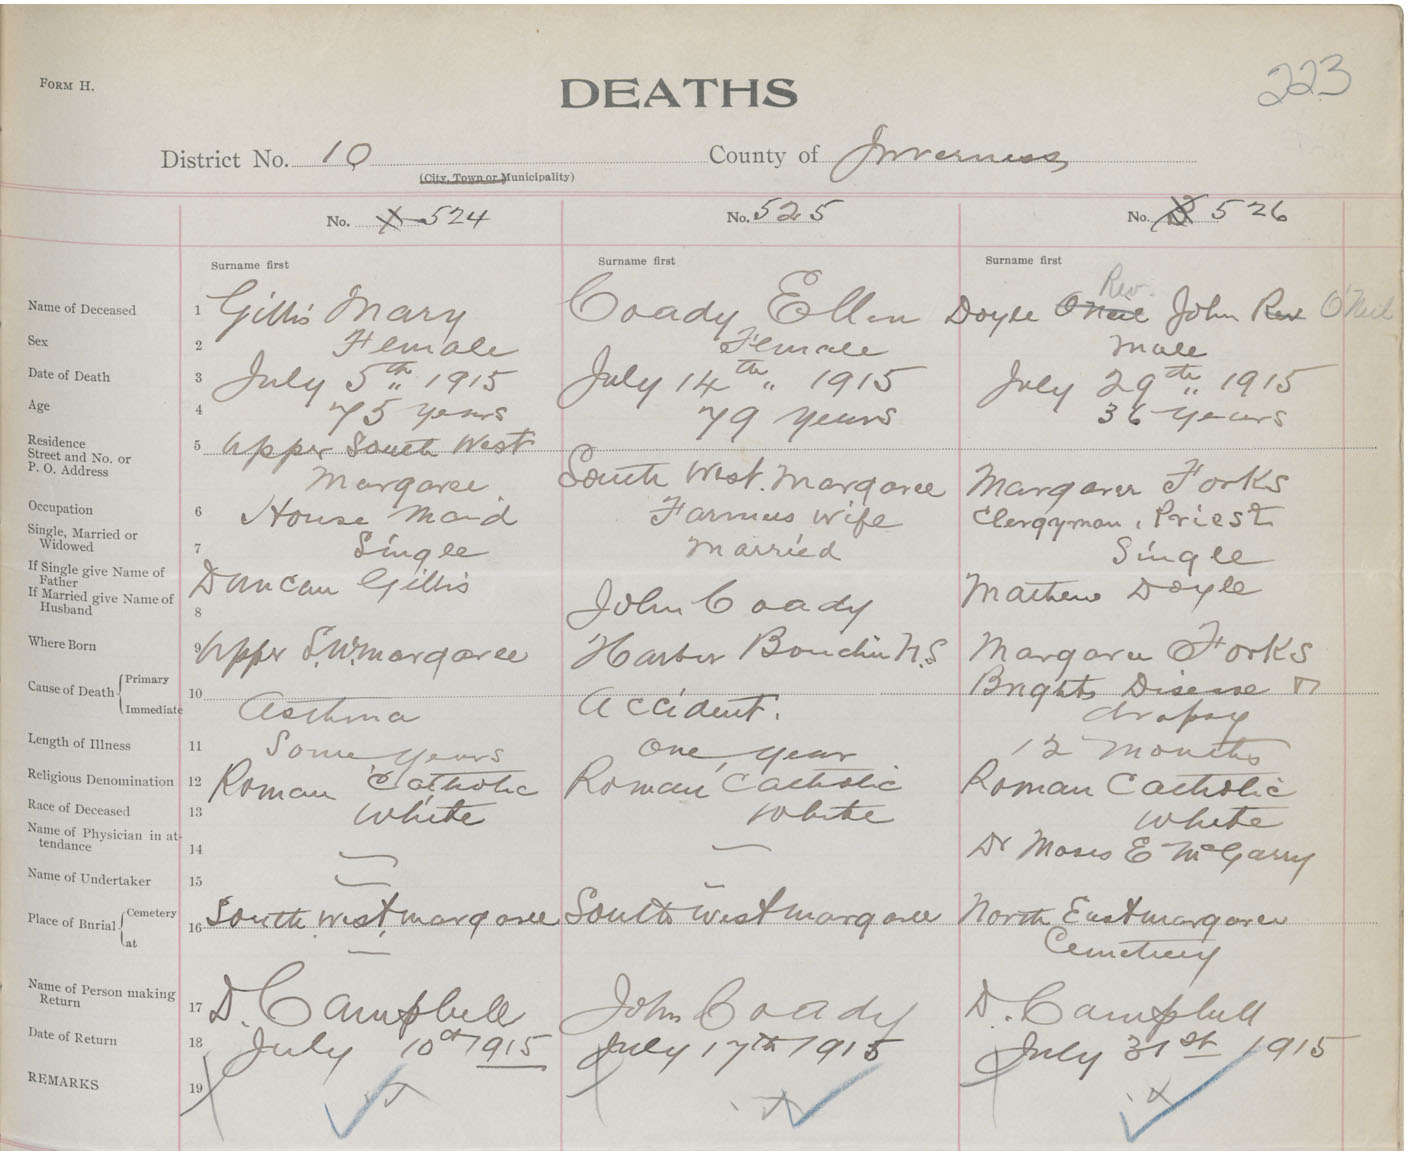 FORM H.
DEATHS
223
District No. 10
County of Inverness
(City, Town or Municipality)
No. 524
No. 525
No. 526
Surname first
Surname first
Surname first
Name of Deceased 1 Gillis Mary
Coady Ellen
Doyle O'Neil Rev. John Rev O'Neil
Sex 2 Female
Female
Male
Date of Death 3 July 5th 1915
July 14th 1915
July 29th 1915
Age 4 75 years
79 years
36 years
Residence
Street and No. or
P. O. Address
5 Upper South West
Margaree
South West Margaree
Margaree Forks
Occupation 6 House Maid
Farmers Wife
Clergyman, Priest
Single, Married or
Widowed
7 Single
Married
Single
If Single give Name of
Father
If Married give Name of
Husband
8
Duncan Gillis
John Coady
Mathew Doyle
Where Born 9 Upper S.W. Margaree
Harbor Bouchie N.S
Margaree Forks
Cause of Death { Primary
Immediate
10
Asthma
Accident.
Brights Disease
dropsy
Length of Illness 11 Some years
One year
12 Months
Religious Denomination 12 Roman Catholic
Roman Catholic
Roman Catholic
Race of Deceased 13 White
White
White
Name of Physician in at-
tendance
14 —
—
Dr Moses E McGarry
Name of Undertaker 15 —
—
Place of Burial { Cemetery
at
16 South West Margaree
—
South West Margaree
North East Margaree
Cemetery
Name of Person making
Return
17 D. Campbell
John Coady
D. Campbell
Date of Return 18 July 10th 1915
July 17th 1915
July 31st 1915
REMARKS 19